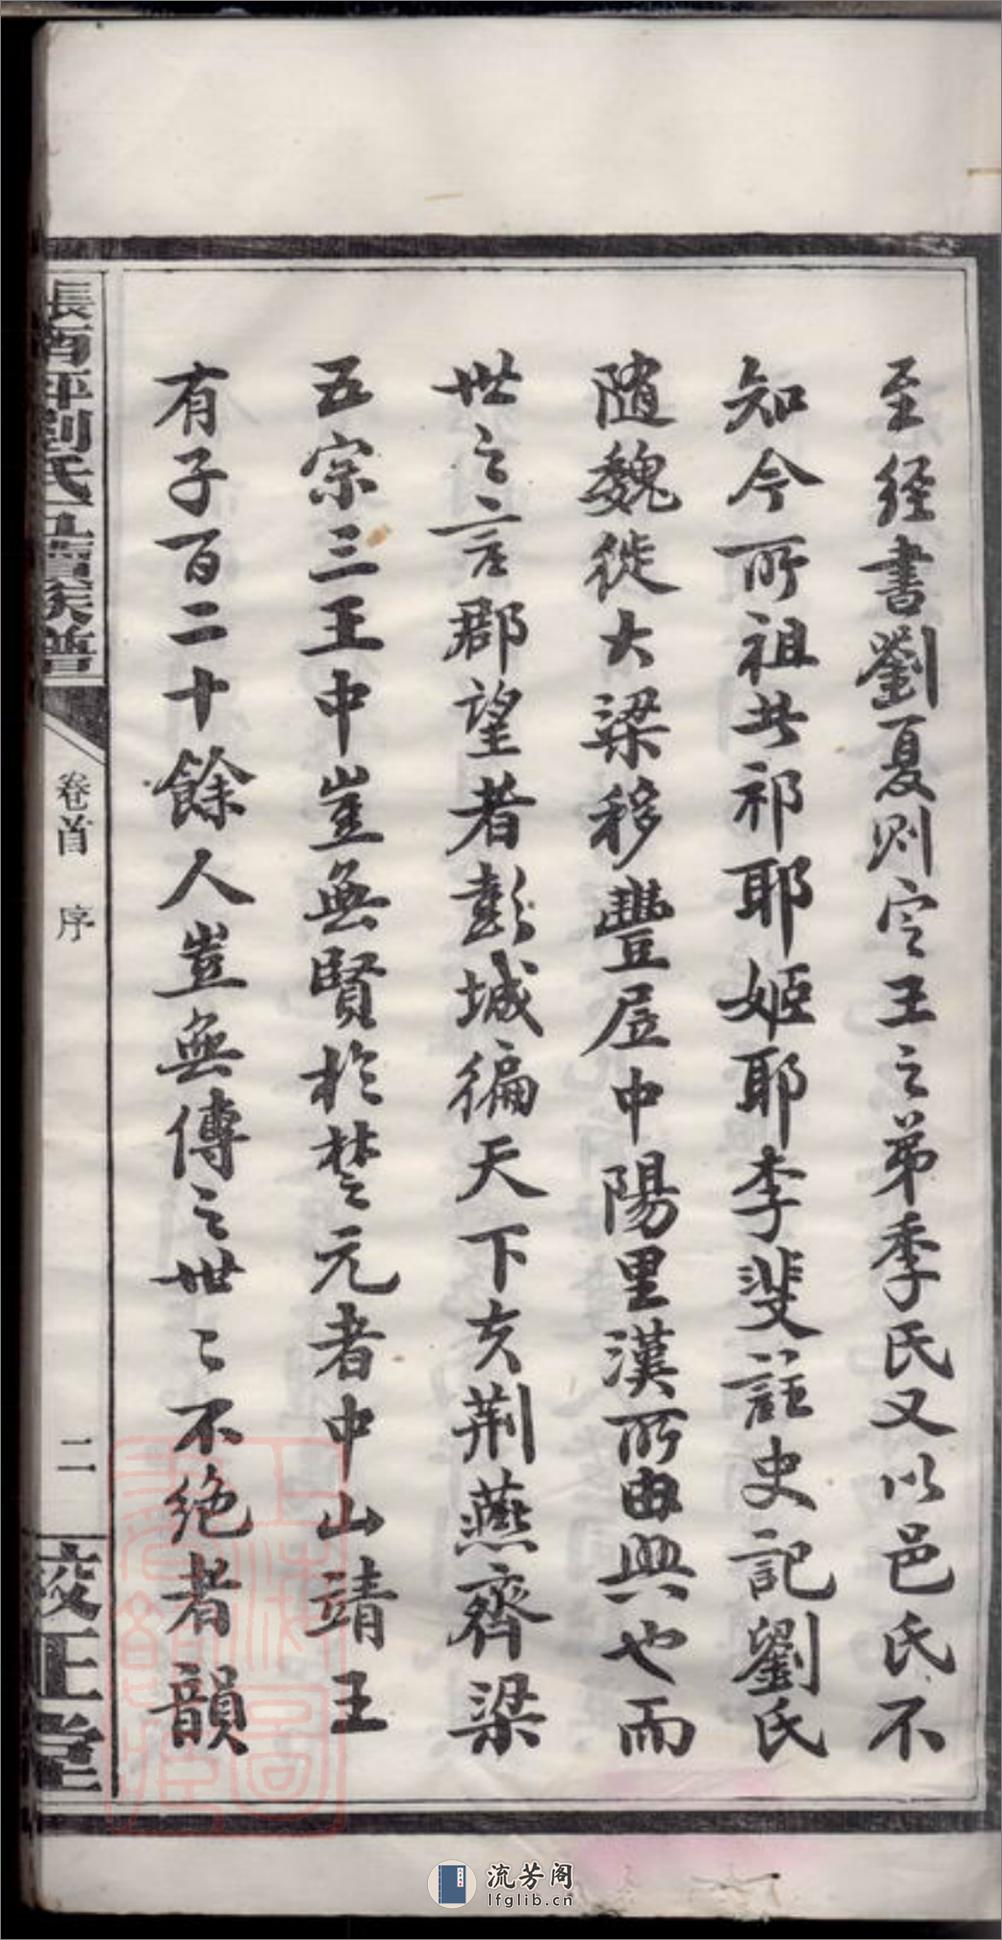 至經書劉夏則定王之弟季氏又以邑氏不
知今所祖共祁耶姬耶李斐註史記劉氏
隨魏徙大梁移豐居中陽里漢所由興也而
世之言郡望者彭城徧天下矣荆燕齊梁
五宗三王中豈無賢於楚元者中山靖王
有子百二十餘人豈無傳之世〻不絕者韻
長西坪劉氏五續族譜
卷首 序
二
校正堂
流芳阁
lfglib.cn